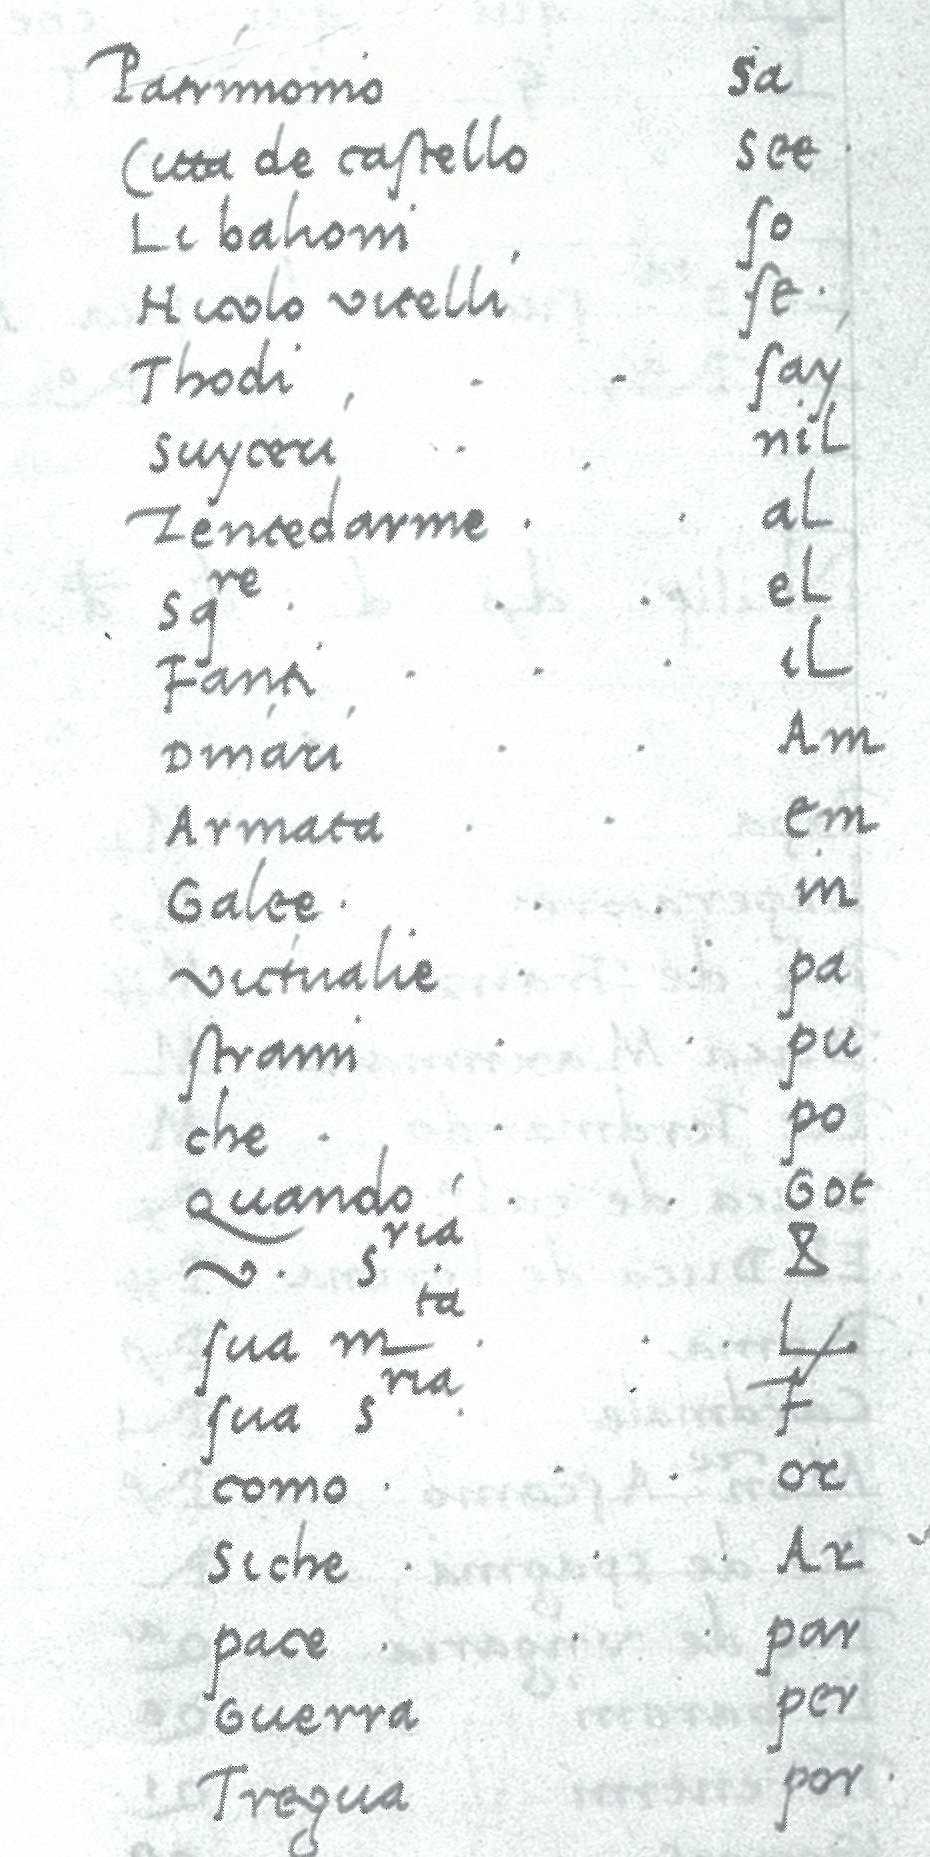 Patrimonio sa
Citta de castello see
Li bahoni so
Nicolo vitelli se
Thodi say
Suyceri nil
Zentedarme al
Sqre el
Fanti il
Dinari Am
Armata em
Galee in
victualie pa
strami pu
che po
Quando Got
v. Sria
sua mta
sua Sria
como or
Siche Ar
pace par
Guerra per
Tregua por